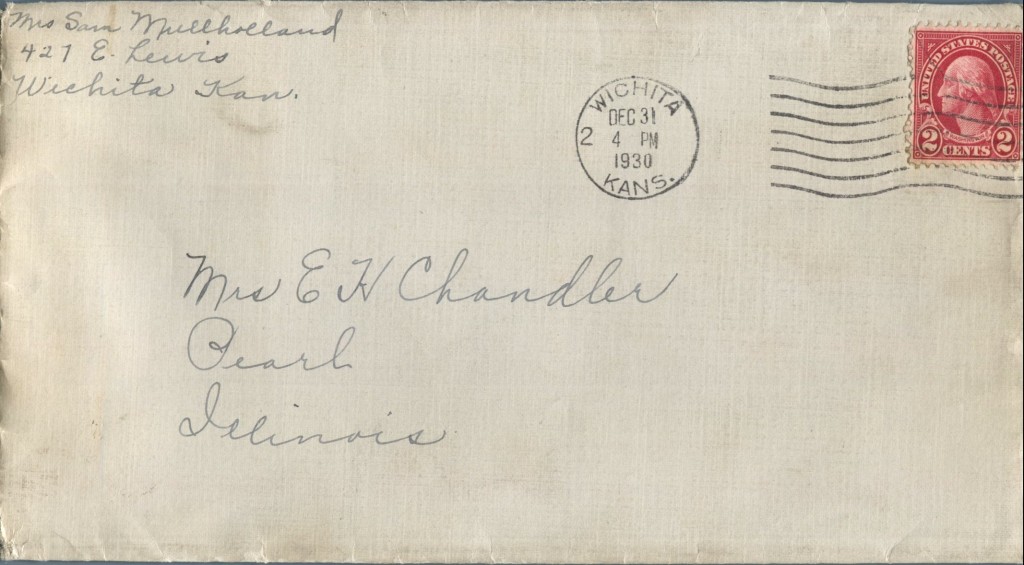 Mrs Sam Mullholland
427 E. Lewis
Wichita Kan.
WICHITA
DEC 31
2 4 PM
1930
KANS.
UNITED STATES POSTAGE
2 CENTS 2
Mrs E H Chandler
Pearl
Illinois